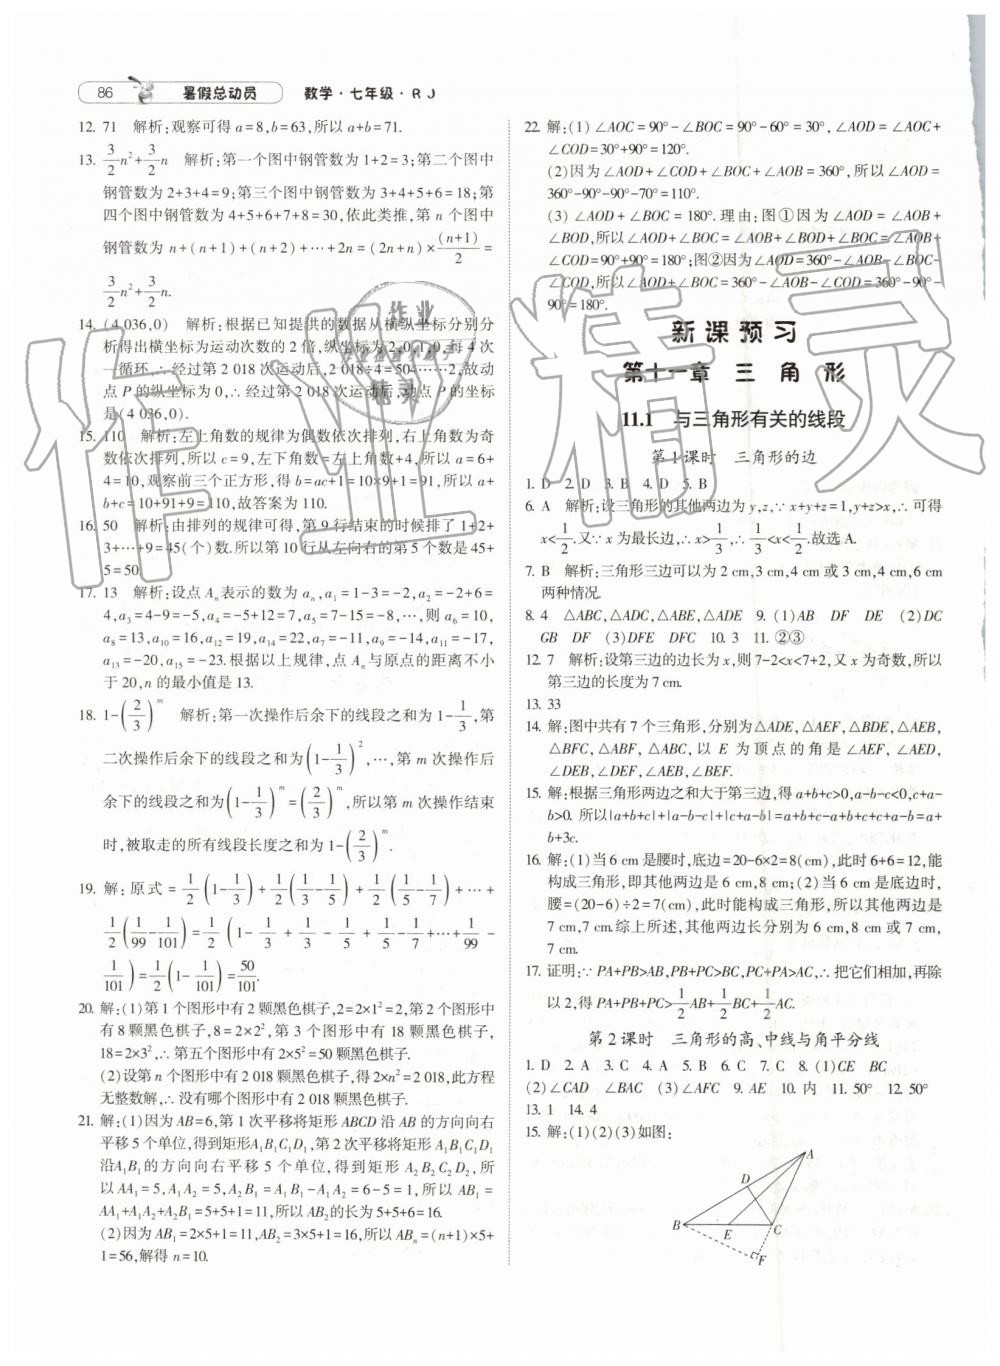 86 暑假总动员 数学·七年级·RJ
12. 71 解析:观察可得a=8,b=63,所以a+b=71.
13. 3/2n²+3/2n 解析:第一个图中钢管数为1+2=3;第二个图中
钢管数为2+3+4=9;第三个图中钢管数为3+4+5+6=18;第
四个图中钢管数为4+5+6+7+8=30,依此类推,第n个图中
钢管数为n+(n+1)+(n+2)+…+2n=(2n+n)×(n+1)/2=
3/2n²+3/2n.
14. (4 036,0) 解析:根据已知提供的数据从横纵坐标分别分
析得出横坐标为运动次数的2倍,纵坐标为2,0,1,0,每4次
一循环,∴经过第2 018次运动后,2 018÷4=504……2,故动
点P的纵坐标为0,∴经过第2 018次运动后,动点P的坐标
是(4 036,0).
15. 110 解析:左上角数的规律为偶数依次排列,右上角数为奇
数依次排列,所以c=9,左下角数=右上角数+1,所以a=6+
4=10,观察前三个正方形,得b=ac+1=10×9+1=91,所以a+
b+c=10+91+9=110,故答案为110.
16. 50 解析:由排列的规律可得,第9行结束的时候排了1+2+
3+…+9=45(个)数.所以第10行从左向右的第5个数是45+
5=50.
17. 13 解析:设点Aₙ表示的数为aₙ,a₁=1-3=-2,a₂=-2+6=
4,a₃=4-9=-5,a₄=-5+12=7,a₅=7-15=-8,…,则a₆=10,
a₈=13,a₁₀=16,a₁₂=19,a₁₄=22,a₇=-11,a₉=-14,a₁₁=-17,
a₁₃=-20,a₁₅=-23.根据以上规律,点Aₙ与原点的距离不小
于20,n的最小值是13.
18. 1-(2/3)^m 解析:第一次操作后余下的线段之和为1-1/3,第
二次操作后余下的线段之和为(1-1/3)²,…,第m次操作后
余下的线段之和为(1-1/3)^m=(2/3)^m,所以第m次操作结束
时,被取走的所有线段长度之和为1-(2/3)^m.
19. 解:原式=1/2(1-1/3)+1/2(1/3-1/5)+1/2(1/5-1/7)+…+
1/2(1/99-1/101)=1/2(1-1/3+1/3-1/5+1/5-1/7+…+1/99-
1/101)=1/2(1-1/101)=50/101.
20. 解:(1)第1个图形中有2颗黑色棋子,2=2×1²,第2个图形中
有8颗黑色棋子,8=2×2²,第3个图形中有18颗黑色棋子,
18=2×3²,∴第五个图形中有2×5²=50颗黑色棋子.
(2)设第n个图形中有2 018颗黑色棋子,得2×n²=2 018,此方程
无整数解,∴没有哪个图形中有2 018颗黑色棋子.
21. 解:(1)因为AB=6,第1次平移将矩形ABCD沿AB的方向向右
平移5个单位,得到矩形A₁B₁C₁D₁,第2次平移将矩形A₁B₁C₁D₁
沿A₁B₁的方向向右平移5个单位,得到矩形A₂B₂C₂D₂,所
以AA₁=5,A₁A₂=5,A₂B₁=A₁B₁-A₁A₂=6-5=1,所以AB₁=
AA₁+A₁A₂+A₂B₁=5+5+1=11,所以AB₂的长为5+5+6=16.
(2)因为AB₁=2×5+1=11,AB₂=3×5+1=16,所以ABₙ=(n+1)×5+
1=56,解得n=10.
22. 解:(1)∠AOC=90°-∠BOC=90°-60°=30°,∠AOD=∠AOC+
∠COD=30°+90°=120°.
(2)因为∠AOD+∠COD+∠BOC+∠AOB=360°,所以∠AOD=
360°-90°-90°-70°=110°.
(3)∠AOD+∠BOC=180°.理由:图①因为∠AOD=∠AOB+
∠BOD,所以∠AOD+∠BOC=∠AOB+∠BOD+∠BOC=∠AOB+
∠COD=90°+90°=180°;图②因为∠AOD=360°-∠AOB-∠BOC-
∠COD,所以∠AOD+∠BOC=360°-∠AOB-∠COD=360°-90°-
90°=180°.
新课预习
第十一章 三角形
11.1 与三角形有关的线段
第1课时 三角形的边
1. D 2. D 3. B 4. D 5. B
6. A 解析:设三角形的其他两边为y,z,∵x+y+z=1,y+z>x,∴可得
x<1/2.又∵x为最长边,∴x>1/3,∴1/3<x<1/2.故选A.
7. B 解析:三角形三边可以为2 cm,3 cm,4 cm或3 cm,4 cm,6 cm
两种情况.
8. 4 △ABC,△ADC,△ABE,△ADE 9. (1)AB DF DE (2)DC
GB DF (3)DFE DFC 10. 3 11. ②③
12. 7 解析:设第三边的边长为x,则7-2<x<7+2,又x为奇数,所以
第三边的长度为7 cm.
13. 33
14. 解:图中共有7个三角形,分别为△ADE,△AEF,△BDE,△AEB,
△BFC,△ABF,△ABC,以E为顶点的角是∠AEF,∠AED,
∠DEB,∠DEF,∠AEB,∠BEF.
15. 解:根据三角形两边之和大于第三边,得a+b+c>0,a-b-c<0,c+a-
b>0.所以|a+b+c|+|a-b-c|+|c+a-b|=a+b+c-a+b+c+c+a-b=a+
b+3c.
16. 解:(1)当6 cm是腰时,底边=20-6×2=8(cm),此时6+6=12,能
构成三角形,即其他两边是6 cm,8 cm;(2)当6 cm是底边时,
腰=(20-6)÷2=7(cm),此时能构成三角形,所以其他两边是
7 cm,7 cm.综上所述,其他两边分别为6 cm,8 cm或7 cm,
7 cm.
17. 证明:∵PA+PB>AB,PB+PC>BC,PC+PA>AC,∴把它们相加,再除
以2,得PA+PB+PC>1/2AB+1/2BC+1/2AC.
第2课时 三角形的高、中线与角平分线
1. D 2. A 3. C 4. A 5. B 6. C 7. C 8. (1)CE BC
(2)∠CAD ∠BAC (3)∠AFC 9. AE 10. 内 11. 50° 12. 50°
13. 1 14. 4
15. 解:(1)(2)(3)如图:
A
D
B E C
F
作业精灵
作业
精灵